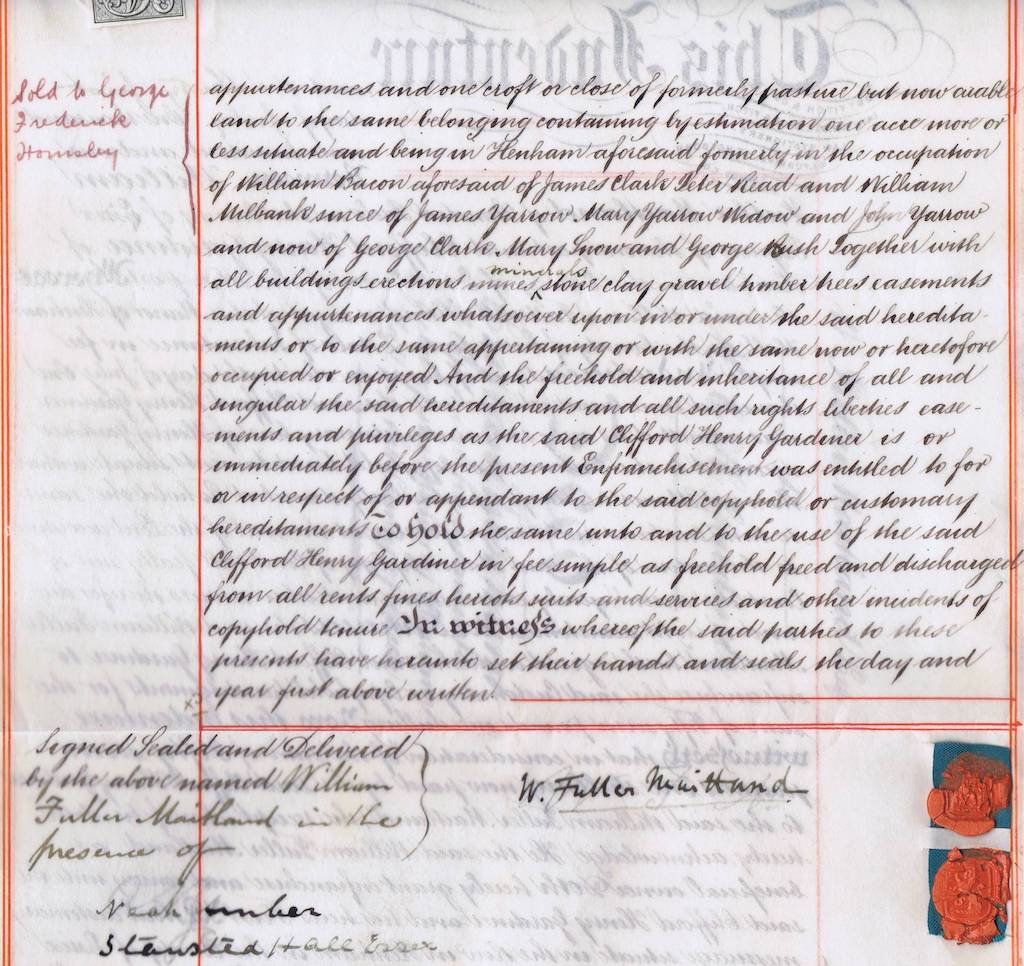 Sold to George
Frederick
Hornsby
appurtenances and one croft or close of formerly pasture but now arable
land to the same belonging containing by estimation one acre more or
less situate and being in Henham aforesaid formerly in the occupation
of William Bacon aforesaid of James Clark Peter Read and William
Milbank since of James Yarrow Mary Yarrow Widow and John Yarrow
and now of George Clark Mary Snow and George Rush Together with
minerals
all buildings erections mines stone clay gravel timber trees easements
and appurtenances whatsoever upon in or under the said heredita-
ments or to the same appertaining or with the same now or heretofore
occupied or enjoyed And the freehold and inheritance of all and
singular the said hereditaments and all such rights liberties ease-
ments and privileges as the said Clifford Henry Gardiner is or
immediately before the present Enfranchisement was entitled to for
or in respect of or appendant to the said copyhold or customary
hereditaments To hold the same unto and to the use of the said
Clifford Henry Gardiner in fee simple as freehold freed and discharged
from all rents fines heriots suits and services and other incidents of
copyhold tenure In witness whereof the said parties to these
presents have hereunto set their hands and seals the day and
year first above written.
Signed Sealed and Delivered
by the above named William
Fuller Maitland in the
presence of
W. Fuller Maitland
Noah
Stansted Hall Essex